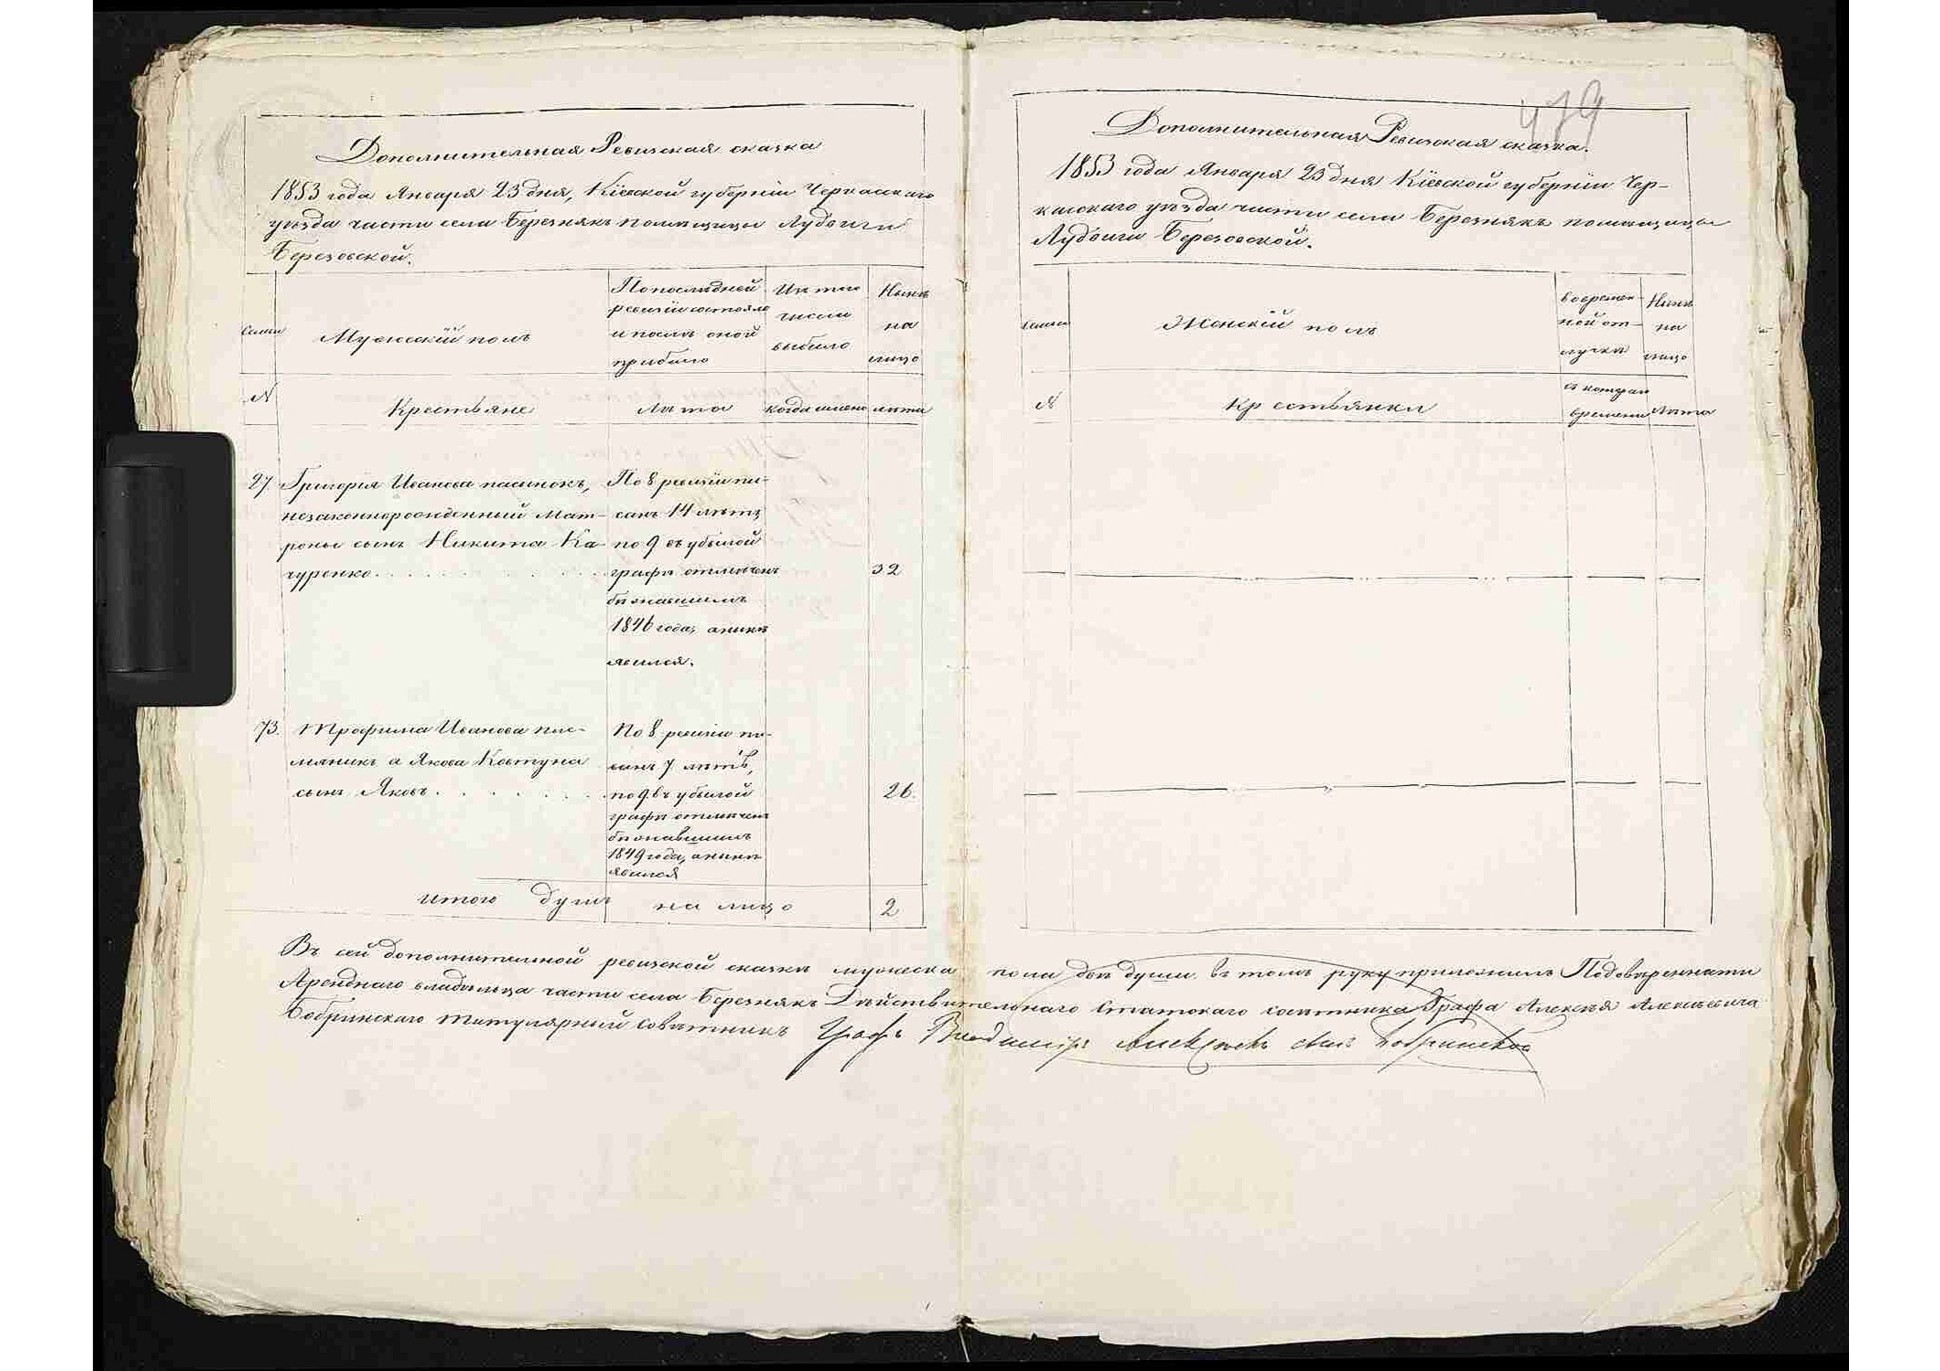 Дополнительная Ревизская сказка
1853 года Января 23 дня, Кіевской губерніи Черкаскаго
уѣзда части села Березнякъ помѣщицы Лудвиги
Березовской.
Семьи
Мужескій полъ
По последней
ревизіи состояло
и послѣ оной
прибыло
Изъ того
числа
выбыло
Нынѣ
на
лицо
№
Крестьяне
Лѣта
когда именно
лѣта
27.
Григорія Иванова пасынокъ,
незаконнорожденный Мат-
роны сынъ Никита Ка-
чуренко
По 8 ревизіи пи-
санъ 14 лѣтъ
по 9 въ убылой
графѣ отмѣченъ
бѣжавшимъ
1846 года, а нынѣ
явился.
32
73.
Трофима Иванова пле-
мяникъ а Якова Ковтуна
сынъ Яковъ
По 8 ревизіи пи-
санъ 7 лѣтъ,
по 9 въ убылой
графѣ отмѣченъ
бѣжавшимъ
1849 года, а нынѣ
явился
26.
итого душъ на лицо 2
479
Дополнительная Ревизская сказка.
1853 года Января 23 дня Кіевской губерніи Чер-
каскаго уѣзда части села Березнякъ помѣщицы
Лудвиги Березовской.
Семьи
Женскій полъ
во времен-
ной от-
лучкѣ
Нынѣ
на
лицо
№
Крестьянки
съ котораго
времени
Лѣта
Въ сей дополнительной ревизской сказкѣ мужеска пола двѣ души. въ томъ руку приложилъ Повѣренный
Аренднаго владѣльца части села Березнякъ Дѣйствительнаго Статскаго совѣтника Графа Алексѣя Алексѣевича
Бобринскаго Титулярный Совѣтникъ Графъ Владиміръ Алексѣевъ сынъ Бобринской